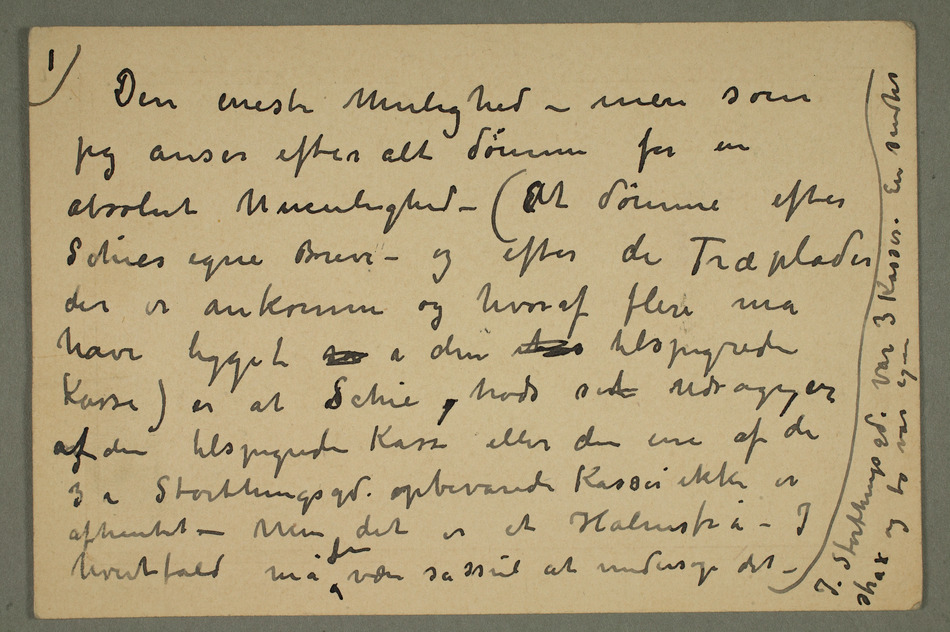 1)
Den eneste Mulighed – men som
jeg anser efter alt dømme for en
absolut Umulighed – (At dømme efter
Schies egne Breve – og efter de Træplader
der er ankomne og hvoraf flere må
have ligget i den tilspigrede
Kasse) er at Schie, trods sit Udsagn er
af den tilspigrede Kasse eller den ene af de
3 i Storthingsgd. opbevarede Kasser ikke er
afhentet – Men det er et Halmstrå – I
hvertfald må jeg være så snil at undersøge det –
I. Storthingsgd. var 3 Kasser. En sendtes
strax og to var igjen